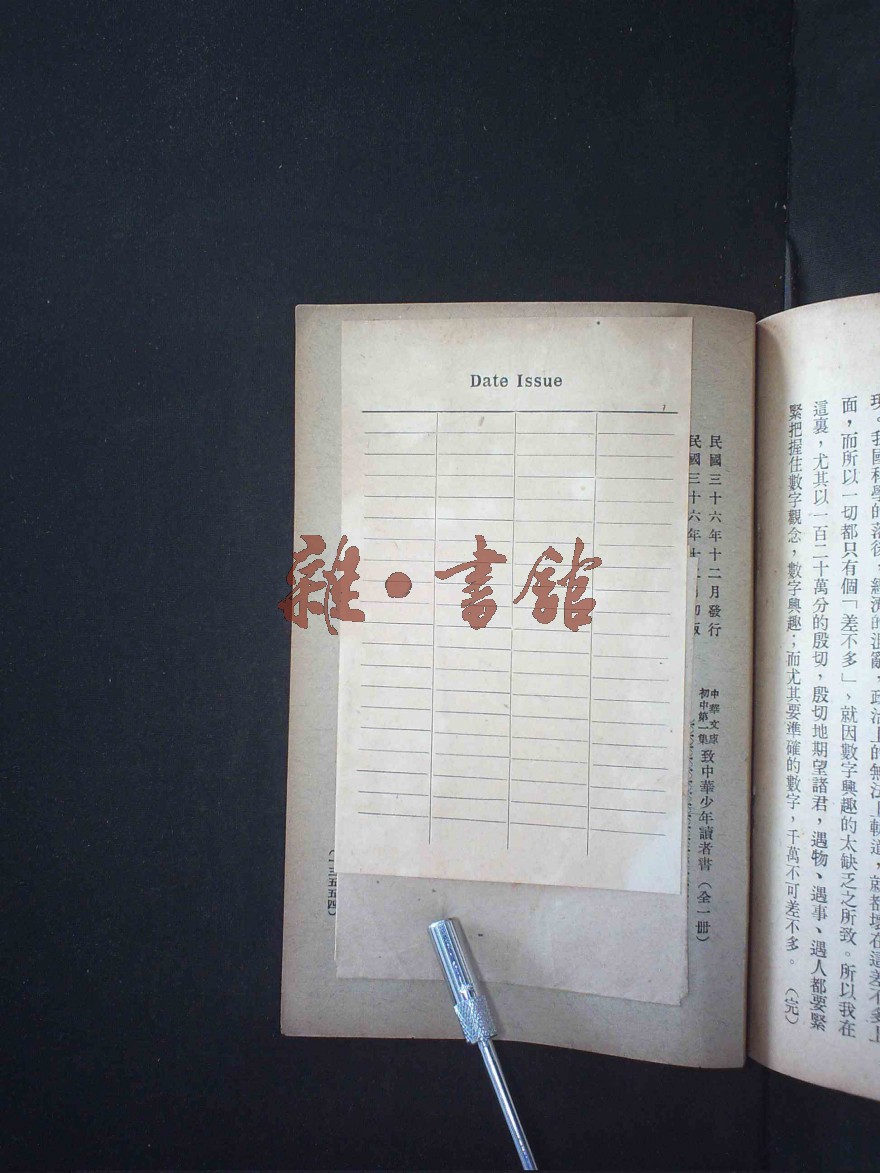 現。我國科學的落後,經濟的混亂,政治上的無法上軌道,就都壞在這差不多上
面,而所以一切都只有個「差不多」,就因數字興趣的太缺乏之所致。所以我在
這裏,尤其以一百二十萬分的殷切,殷切地期望諸君,遇物、遇事、遇人都要緊
緊把握住數字觀念,數字興趣;而尤其要準確的數字,千萬不可差不多。 (完)
民國三十六年十二月發行
民國三十六年十
中華文庫
初中第一集
致中華少年讀者書(全一冊)
Date Issue
雜·書館
(一三五五四)